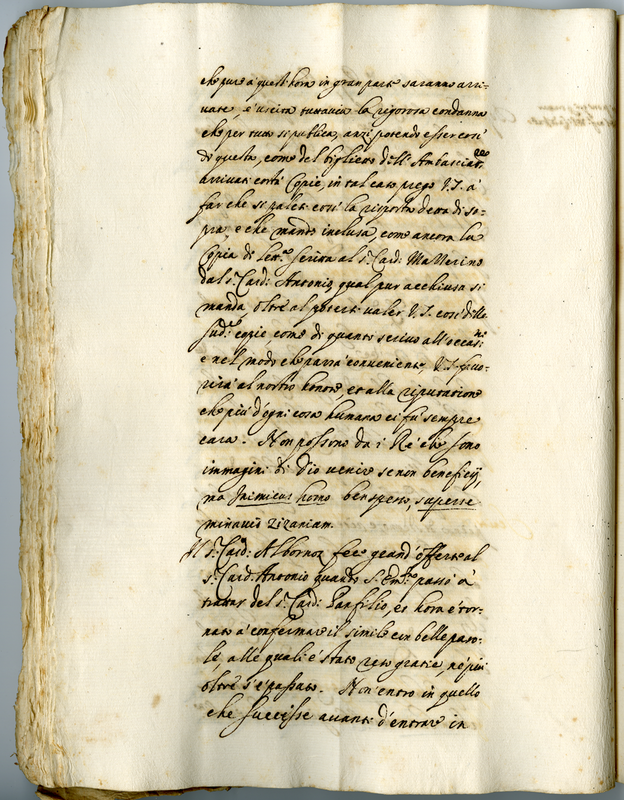 che pure à quest'hora in gran parte saranno arri-
uate, è uscita tuttauia la rigorosa condanna
che per tutto si publica, anzi potendo esser così
di questo, come del biglietto dell'Ambasciat.re
arriuate costì Copie, in tal caso prego V.S. à
far che si palesi così la risposta detta di so-
pra, e che mando inclusa, come ancora la
Copia di let.ra scritta al S.r Card: Mazzerino
dal S.r Card: Antonio, qual pur acchiusa si
manda, oltre al potersi ualer V.S. così delle
sud.e copie, come di quanto scriuo all'occas.ni
e nel modo che parrà conueniente V.S. fauo-
rirà al nostro honore, et alla riputatione
che più d'ogni cosa humana ci fù sempre
cara. Non possono da i Rè che sono
immagini di Dio uenire se non beneficij,
ma Inimicus homo ben spesso, superse
minauit zizaniam.
Il S.r Card: Albornoz fece grand'offerte al
S.r Card. Antonio quando S. Em.za passò à
trattar del S.r Card: Panfilio, et hora è tor-
nato à confermare il simile con belle paro-
le, alle quali è stato reso gratie, nè più
oltre s'è passato. Non entro in quello
che successe auanti d'entrare in